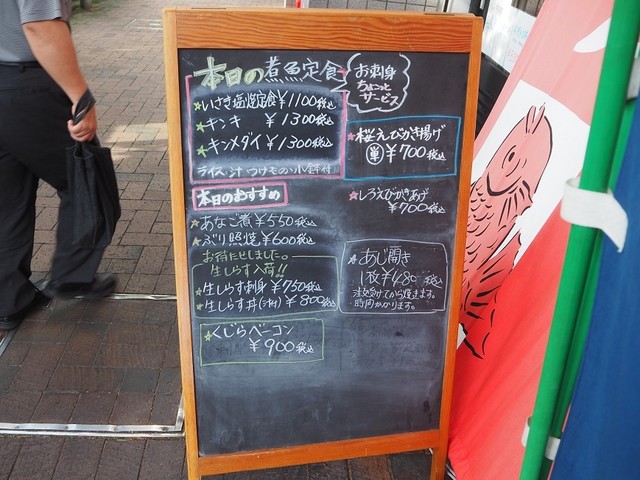 本日の煮魚定食
お刺身
ちょこっと
サービス
いさき塩焼定食¥1100税込
キンキ ¥1300税込
キンメダイ ¥1300税込
ライス 汁 つけもの 小鉢付
本日のおすすめ
あなご煮¥550税込
ぶり照焼¥600税込
お待たせしました。
生しらす入荷!!
生しらす刺身¥750税込
生しらす丼(汁付)¥800税込
くじらベーコン
¥900税込
桜えびかき揚げ
単¥700税込
しろえびかきあげ
¥700税込
あじ開き
1枚¥480税込
注文受けてから焼きます。
時間かかります。